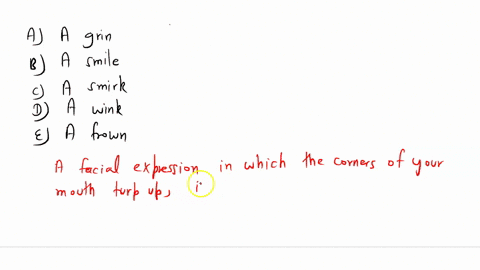 A) A grin
B) A smile
C) A smirk
D) A wink
E) A frown
A facial expression in which the corners of your
mouth turp up, i